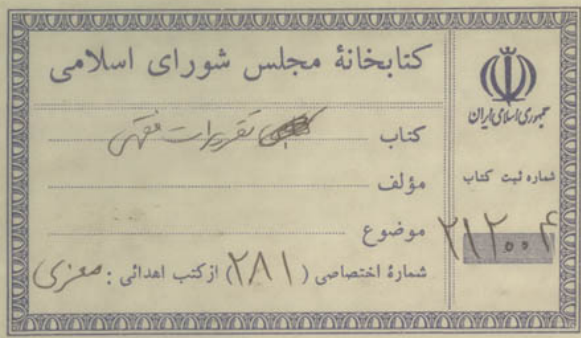 کتابخانهٔ مجلس شورای اسلامی
کتاب تقریرات فقهی
مؤلف
موضوع
شمارهٔ اختصاصی (۲۸۱) از کتب اهدائی : معزی
جمهوری اسلامی ایران
شماره ثبت کتاب
۲۱۲۰۰۴